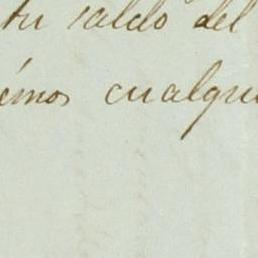 tu saldo del
imos cualqui